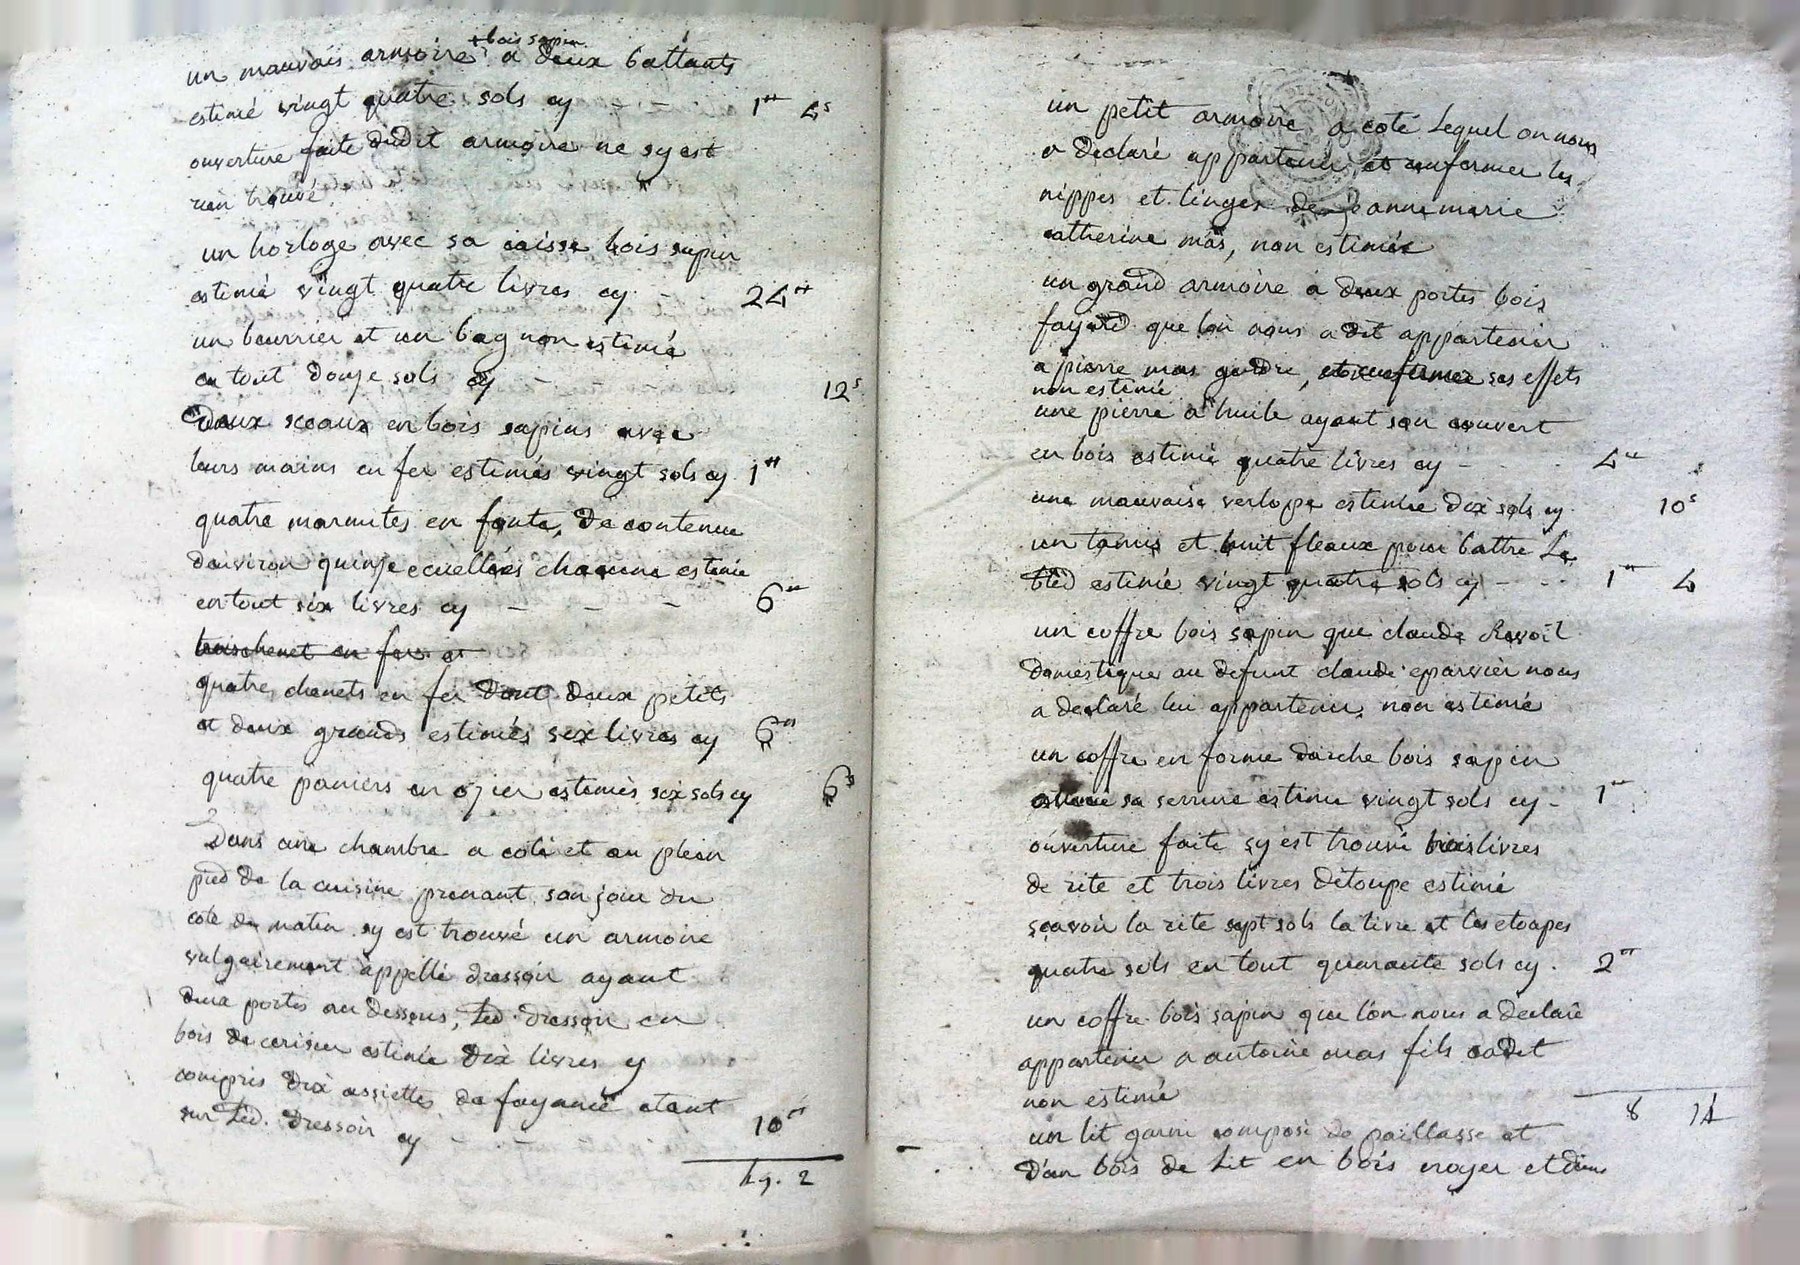 + bois sapin
un mauvais armoire + a deux battants
estimé vingt quatre sols cy - 1ᵗᵗ 4ˢ
ouverture faite dudit armoire ne sy est
rien trouvé
un horloge avec sa caisse bois sapin
estimé vingt quatre livres cy - 24ᵗᵗ
un beurrier et un bag non estimé
en tout douze sols cy - 12ˢ
Deux sceaux en bois sapins avec
leurs mains en fer estimés vingt sols cy 1ᵗᵗ
quatre marmites en fonte, de contenue
denviron quinze ecuellées chacune estimé
en tout six livres cy - - - 6ᵗᵗ
trois chenet en fer et
quatre chenets en fer dont deux petits
et deux grands estimés six livres cy 6ᵗᵗ
quatre paniers en ozier estimés six sols cy 6ˢ
Dans une chambre a coté et au plein
pied de la cuisine prenant son jour du
coté de matin sy est trouvé un armoire
vulgairement appellé dressoir ayant
deux portes au dessous, Led. dressoir en
bois de cerisier estimé dix livres cy
compris dix assiettes de fayance etant
sur Led. dressoir cy - - 10ᵗᵗ
49. 2
un petit armoire a coté Lequel on nous
a declaré appartenir, et enfermer les
nippes et linges de jeanne marie
catherine mas, non estimée
un grand armoire a deux portes bois
fayard que lon nous a dit appartenir
a pierre mas gendre, et enfermer ses effets
non estimé
une pierre a huile ayant son couvert
en bois estimé quatre livres cy - 4ᵗᵗ
une mauvaise verlope estimée dix sols cy 10ˢ
un tamis et huit fleaux pour battre Le
bled estimé vingt quatre sols cy - - 1ᵗᵗ 4
un coffre bois sapin que claude Revoil
domestique au defunt claude eparvier nous
a declaré lui appartenir, non estimé
un coffre en forme darche bois sapin
sa serrure estimé vingt sols cy - 1ᵗᵗ
ouverture faite sy est trouvé trois livres
de rite et trois livres detoupe estimé
sçavoir la rite sept sols la livre et les etoupes
quatre sols en tout quarante sols cy . 2ᵗᵗ
un coffre bois sapin que l'on nous a declaré
appartenir a antoine mas fils cadet
non estimé
8 14
un lit garni composé de paillasse et
D'un bois de Lit en bois noyer et d'une